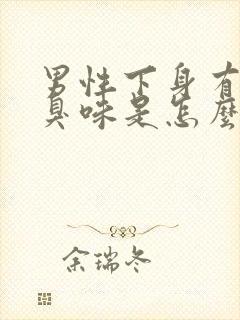 男性下身有
臭味是怎麼
余瑞冬